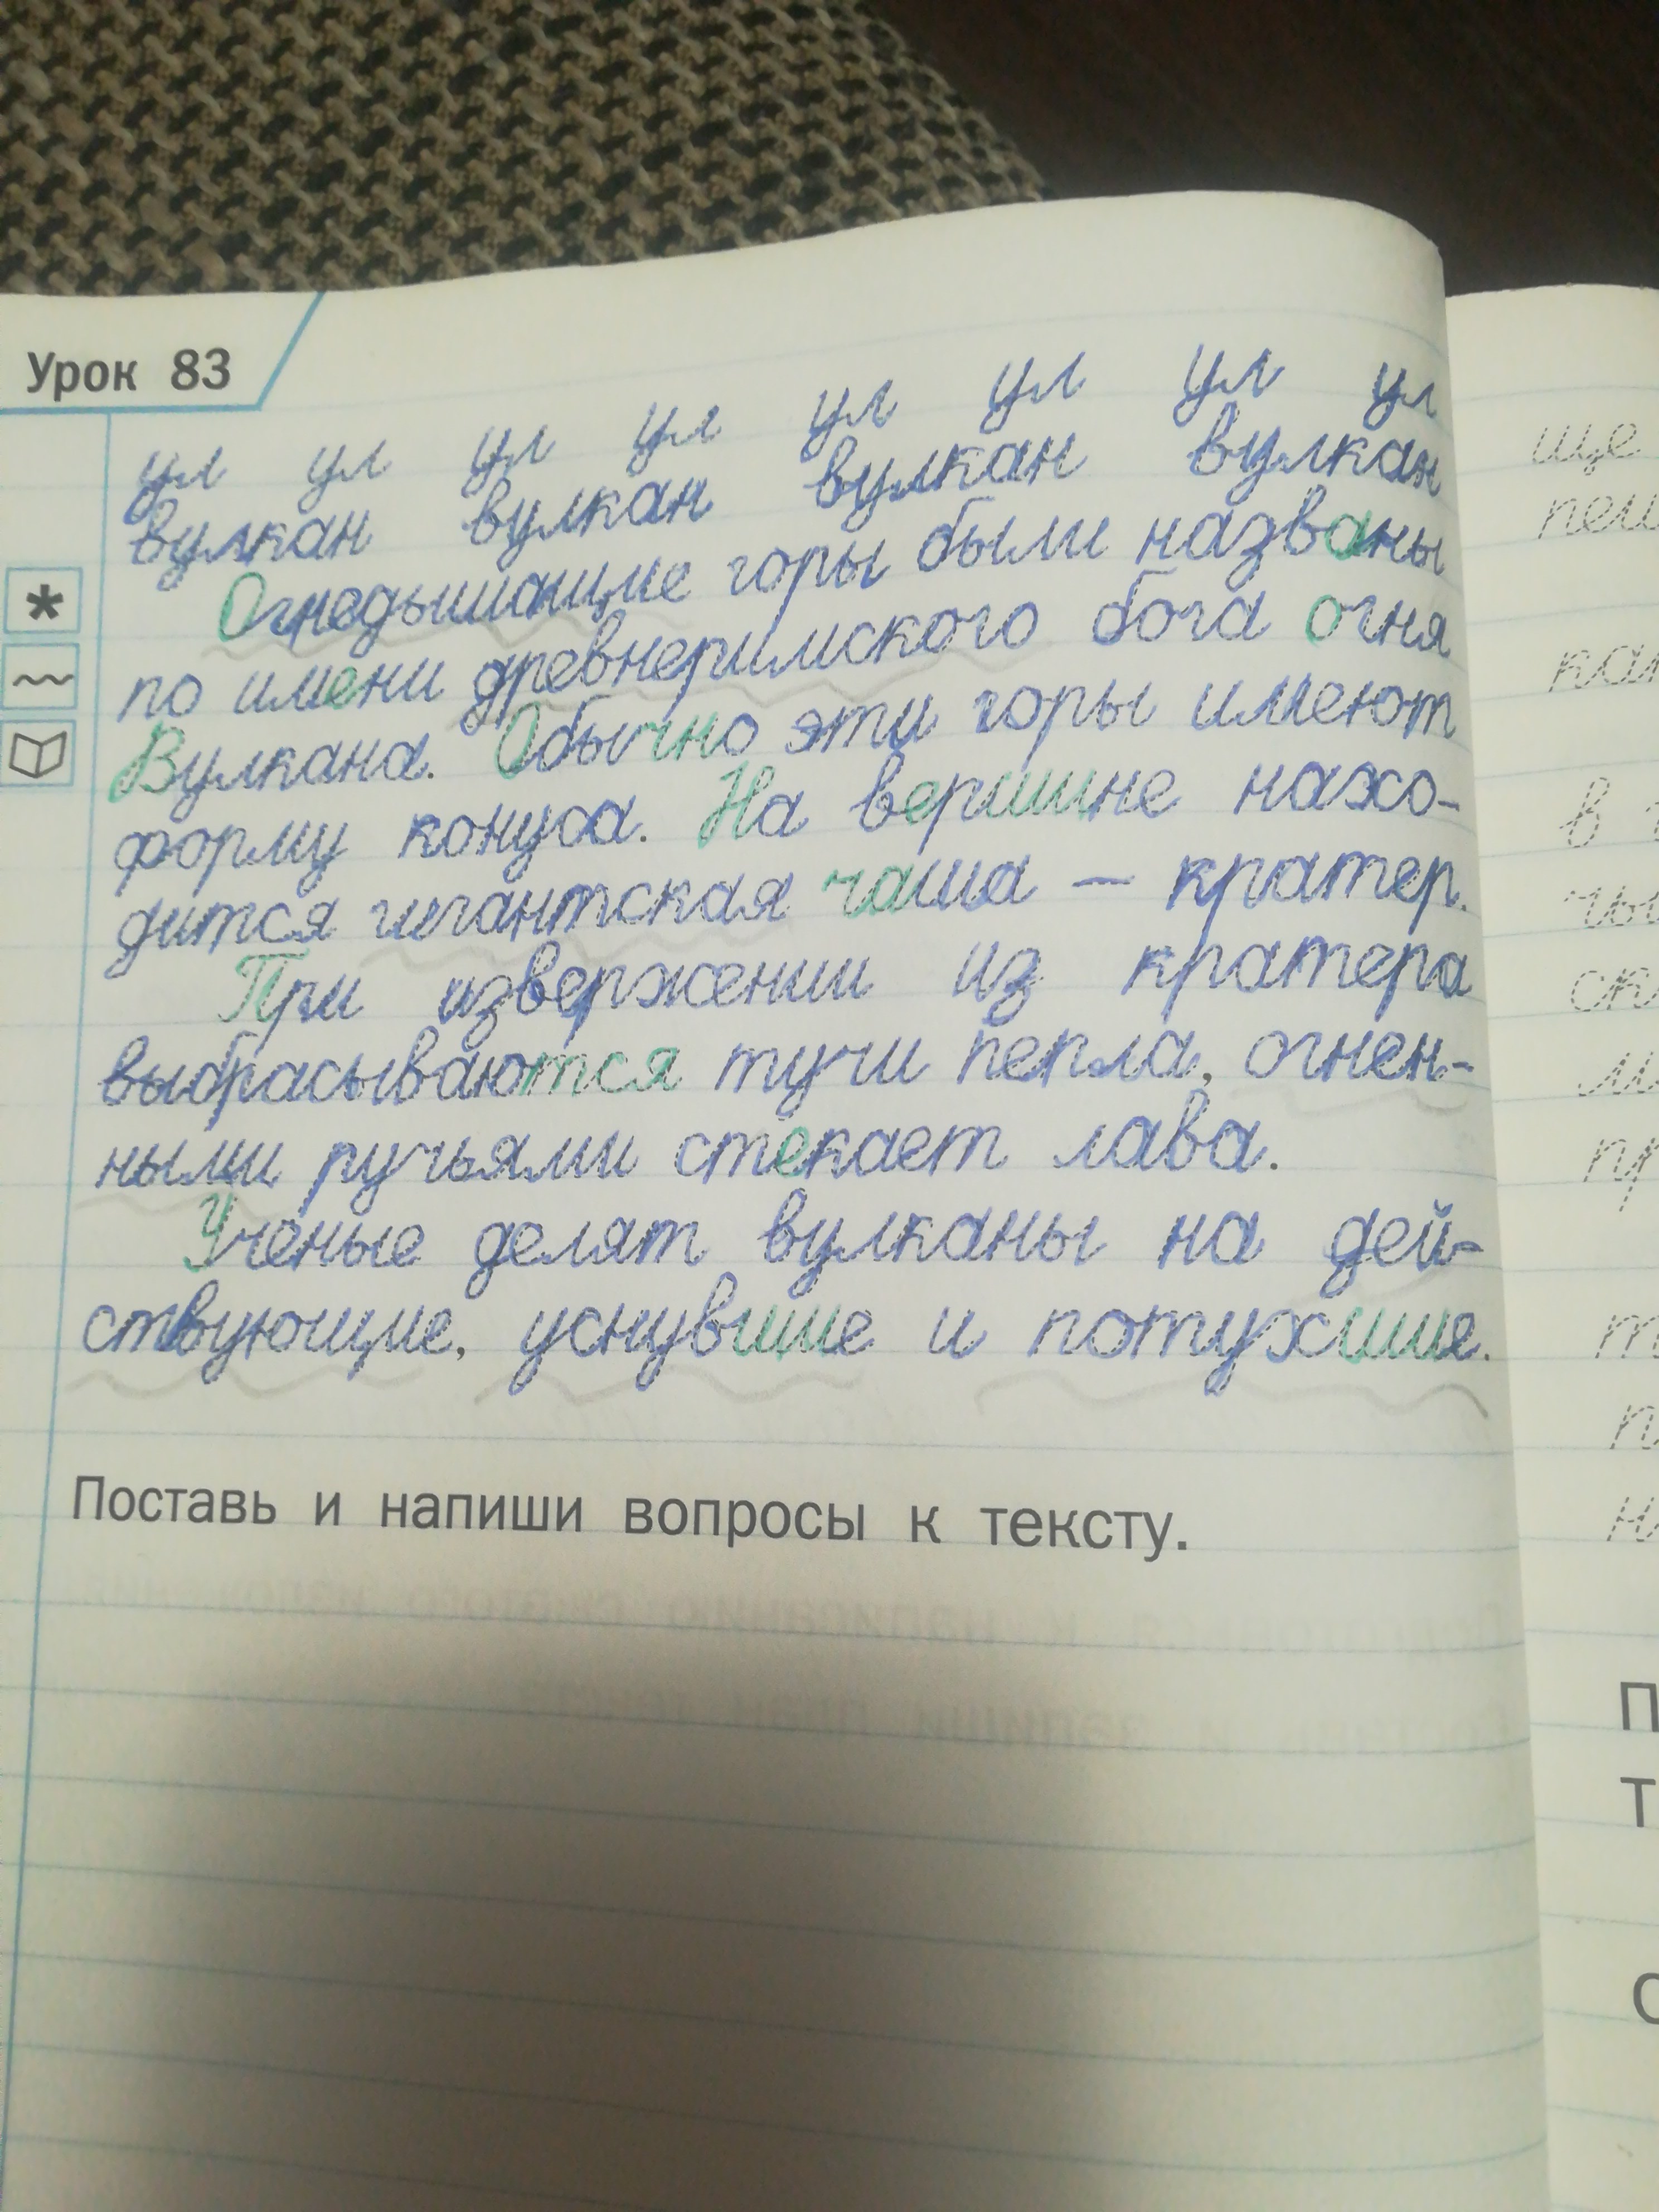 Урок 83
ул ул ул ул ул ул ул ул
вулкан вулкан вулкан вулкан
Огнедышащие горы были названы
по имени древнеримского бога огня
Вулкана. Обычно эти горы имеют
форму конуса. На вершине нахо-
дится гигантская чаша — кратер.
При извержении из кратера
выбрасываются тучи пепла, огнен-
ными ручьями стекает лава.
Ученые делят вулканы на дей-
ствующие, уснувшие и потухшие.
Поставь и напиши вопросы к тексту.
ще
в